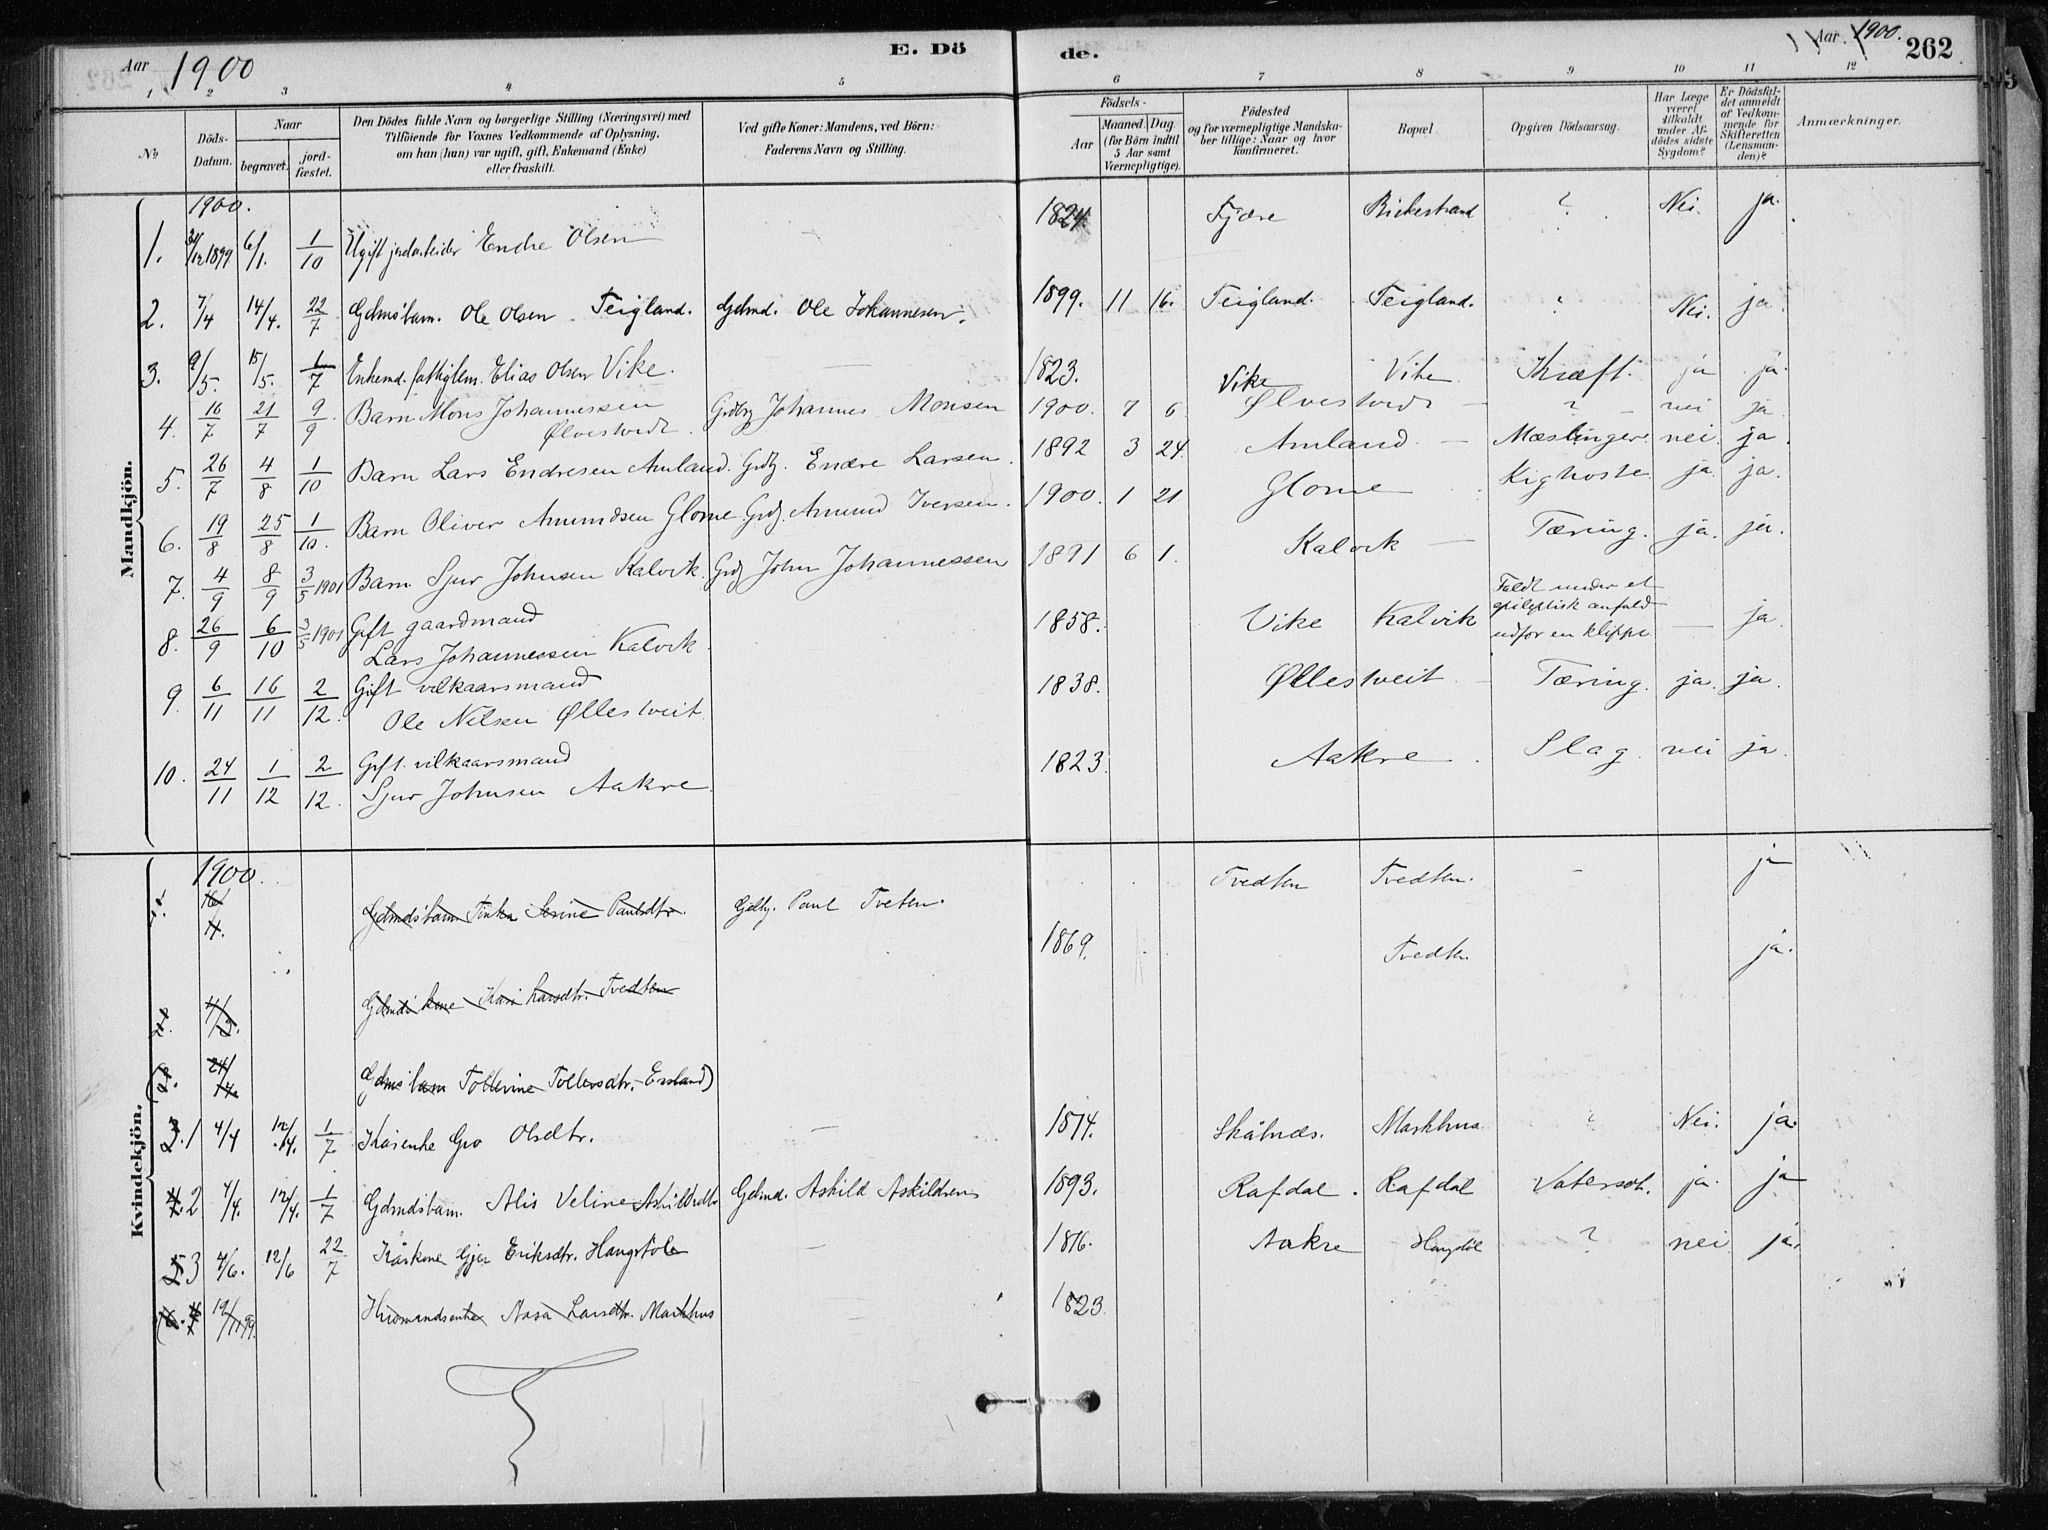 Aar 1900 E. Dö de. Aar 1900. 262
1 2 3 4 5 6 7 8 9 10 11 12
No
Döds-Datum.
Naar
begravet.
jord-fæstet.
Den Dödes fulde Navn og borgerlige Stilling (Næringsvei) med
Tilföiende for Voxnes Vedkommende af Oplysning,
om han (hun) var ugift, gift, Enkemand (Enke)
eller fraskilt.
Ved gifte Koner: Mandens, ved Börn:
Faderens Navn og Stilling.
Födsels-
Aar
Maaned. Dag.
(for Börn indtil
5 Aar samt
Værnepligtige).
Födested
og for værnepligtige Mandska-
ber tillige: Naar og hvor
konfirmeret.
Bopæl.
Opgiven Dödsaarsag.
Har Læge
været
tilkaldt
under Af-
dödes sidste
Sygdom?
Er Dödsfal-
det anmeldt
af Vedkom-
mende for
Skifteretten
(Lensman-
den)?
Anmærkninger.
Mandkjön.
1900.
1. 31/12 1899 6/1. 1/10 Ugift jordarbeider Endre Olsen — 1824. Fjære Birkestrand ? Nei. ja.
2. 7/4 14/4. 22/7 Gdmsbarn. Ole Olsen Teigland. Gdmd. Ole Johannesen. 1899. 11 16. Teigland. Teigland. ? Nei. ja.
3. 9/5. 15/5. 1/7 Enkemd. fattiglem. Elias Olsen Vike. — 1823. Vike Vike Kræft. ja ja.
4. 16/7 21/7 9/9 Barn Mons Johannessen Grdbr Johannes Monsen 1900. 7 6 Ølvestvedt — ? — nei ja.
Ølvestvedt.
5. 26/7 4/8 1/10 Barn Lars Endresen Amland. Grdb. Endre Larsen. 1892 3 24. Amland. — Mæslinger. nei. ja.
6. 19/8 25/8 1/10. Barn Oliver Amundsen Glome. Grdb. Amund Iversen. 1900. 1 21 Glome Kighoste. ja. ja.
7. 4/9 8/9 3/5 1901 Barn Sjur Johnsen Kalvik. Grdb John Johannessen 1891 6 1. Kalvik — Tæring. ja. ja.
8. 26/9 6/10 3/5 1901 Gift gaardmand 1858. Vike Kalvik Faldt under et
epileptisk anfald
udfor en klippe. — ja.
Lars Johannessen Kalvik
9. 6/11 16/11 2/12. Gift vilkaarsmand 1838. Øllestveit — Tæring. ja. ja.
Ole Nilsen Øllestveit
10. 24/11 1/12 2/12. Gift. vilkaarsmand 1823. Aakre. Slag. nei ja.
Sjur Johnsen Aakre
Kvindekjön.
1900.
Gdmdsbarn Tinka Serine Paulsdtr. Gdbr. Paul Tveten. Tvedten Tvedten. - ja
Gdmds kone Kari Larsdtr. Tvedten 1869. Tvedten. ja.
Gdms barn Tollerine Tollersdtr. Ersland)
1 4/4 12/4. 1/7 Kårenke Gro Olsdtr. — 1814. Skålnæs. Markhus ? Nei. ja.
2 7/4. 12/4. 1/7 Gdmdsbarn. Alis Veline Askildsdtr Gdmd. Askild Askildsen 1893. Rafdal. Rafdal Vatersot. ja. ja
3 7/6. 12/6 22/7 Kårkone Gjer Eriksdtr. Haugstøle — 1816. Aakre Haugstøl ? nei ja.
19/11 99. Husmandsenke Aasa Larsdtr. Markhus 1823.